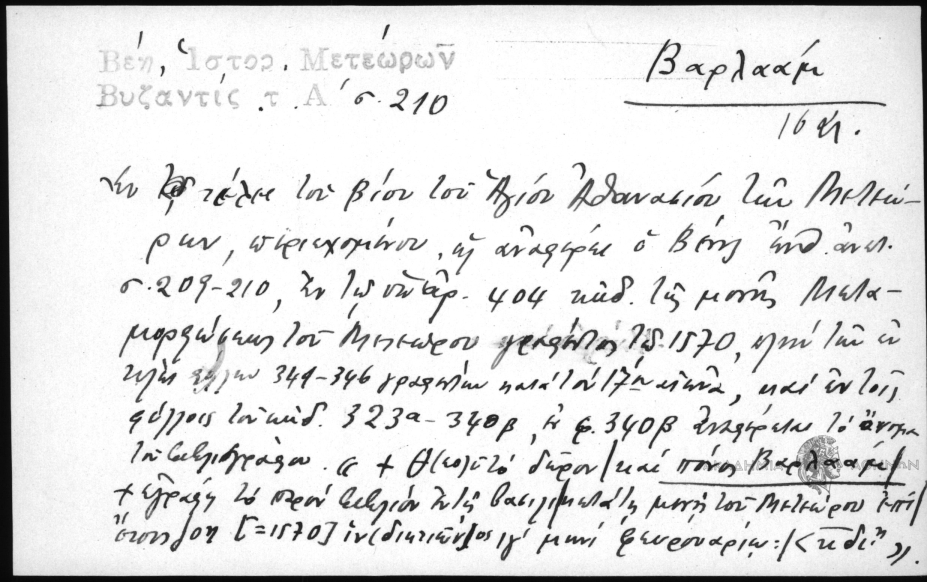 Βέη, Ἱστορ. Μετεώρων
Βυζαντίς τ. Α΄ σ. 210
Βαρλαάμ
16 αἰ.
Ἐν τέλει τοῦ βίου τοῦ Ἁγίου Ἀθανασίου τῶν Μετεώ-
ρων, περιεχομένου, ὡς ἀναφέρει ὁ Βέης ἔνθ. ἀνωτ.
σ. 209-210, ἐν τῷ ὑπ' ἀρ. 404 κώδ. τῆς μονῆς Μετα-
μορφώσεως τοῦ Μετεώρου γραφέντος τῷ 1570, πλὴν τῶν ἐν
τέλει φύλλων 341-346 γραφέντων κατὰ τὸν 17ον αἰῶνα, καὶ ἐν τοῖς
φύλλοις τοῦ κώδ. 323α-340β, ἐν φ. 340β ἀναφέρεται τὸ ὄνομα
τοῦ βιβλιογράφου. « + Θ(εο)ῦ τὸ δῶρον / καὶ πόνος Βαρλαάμ /
+ ἐγράφη τὸ παρὸν βιβλίον ἐν τῇ βασιλι/ μονῇ τοῦ Μετεώρου ἐπὶ /
ἔτους ζοη [=1570] ἰν(δικτιῶν)ος ιγ΄ μηνὶ φευρουαρίῳ: /